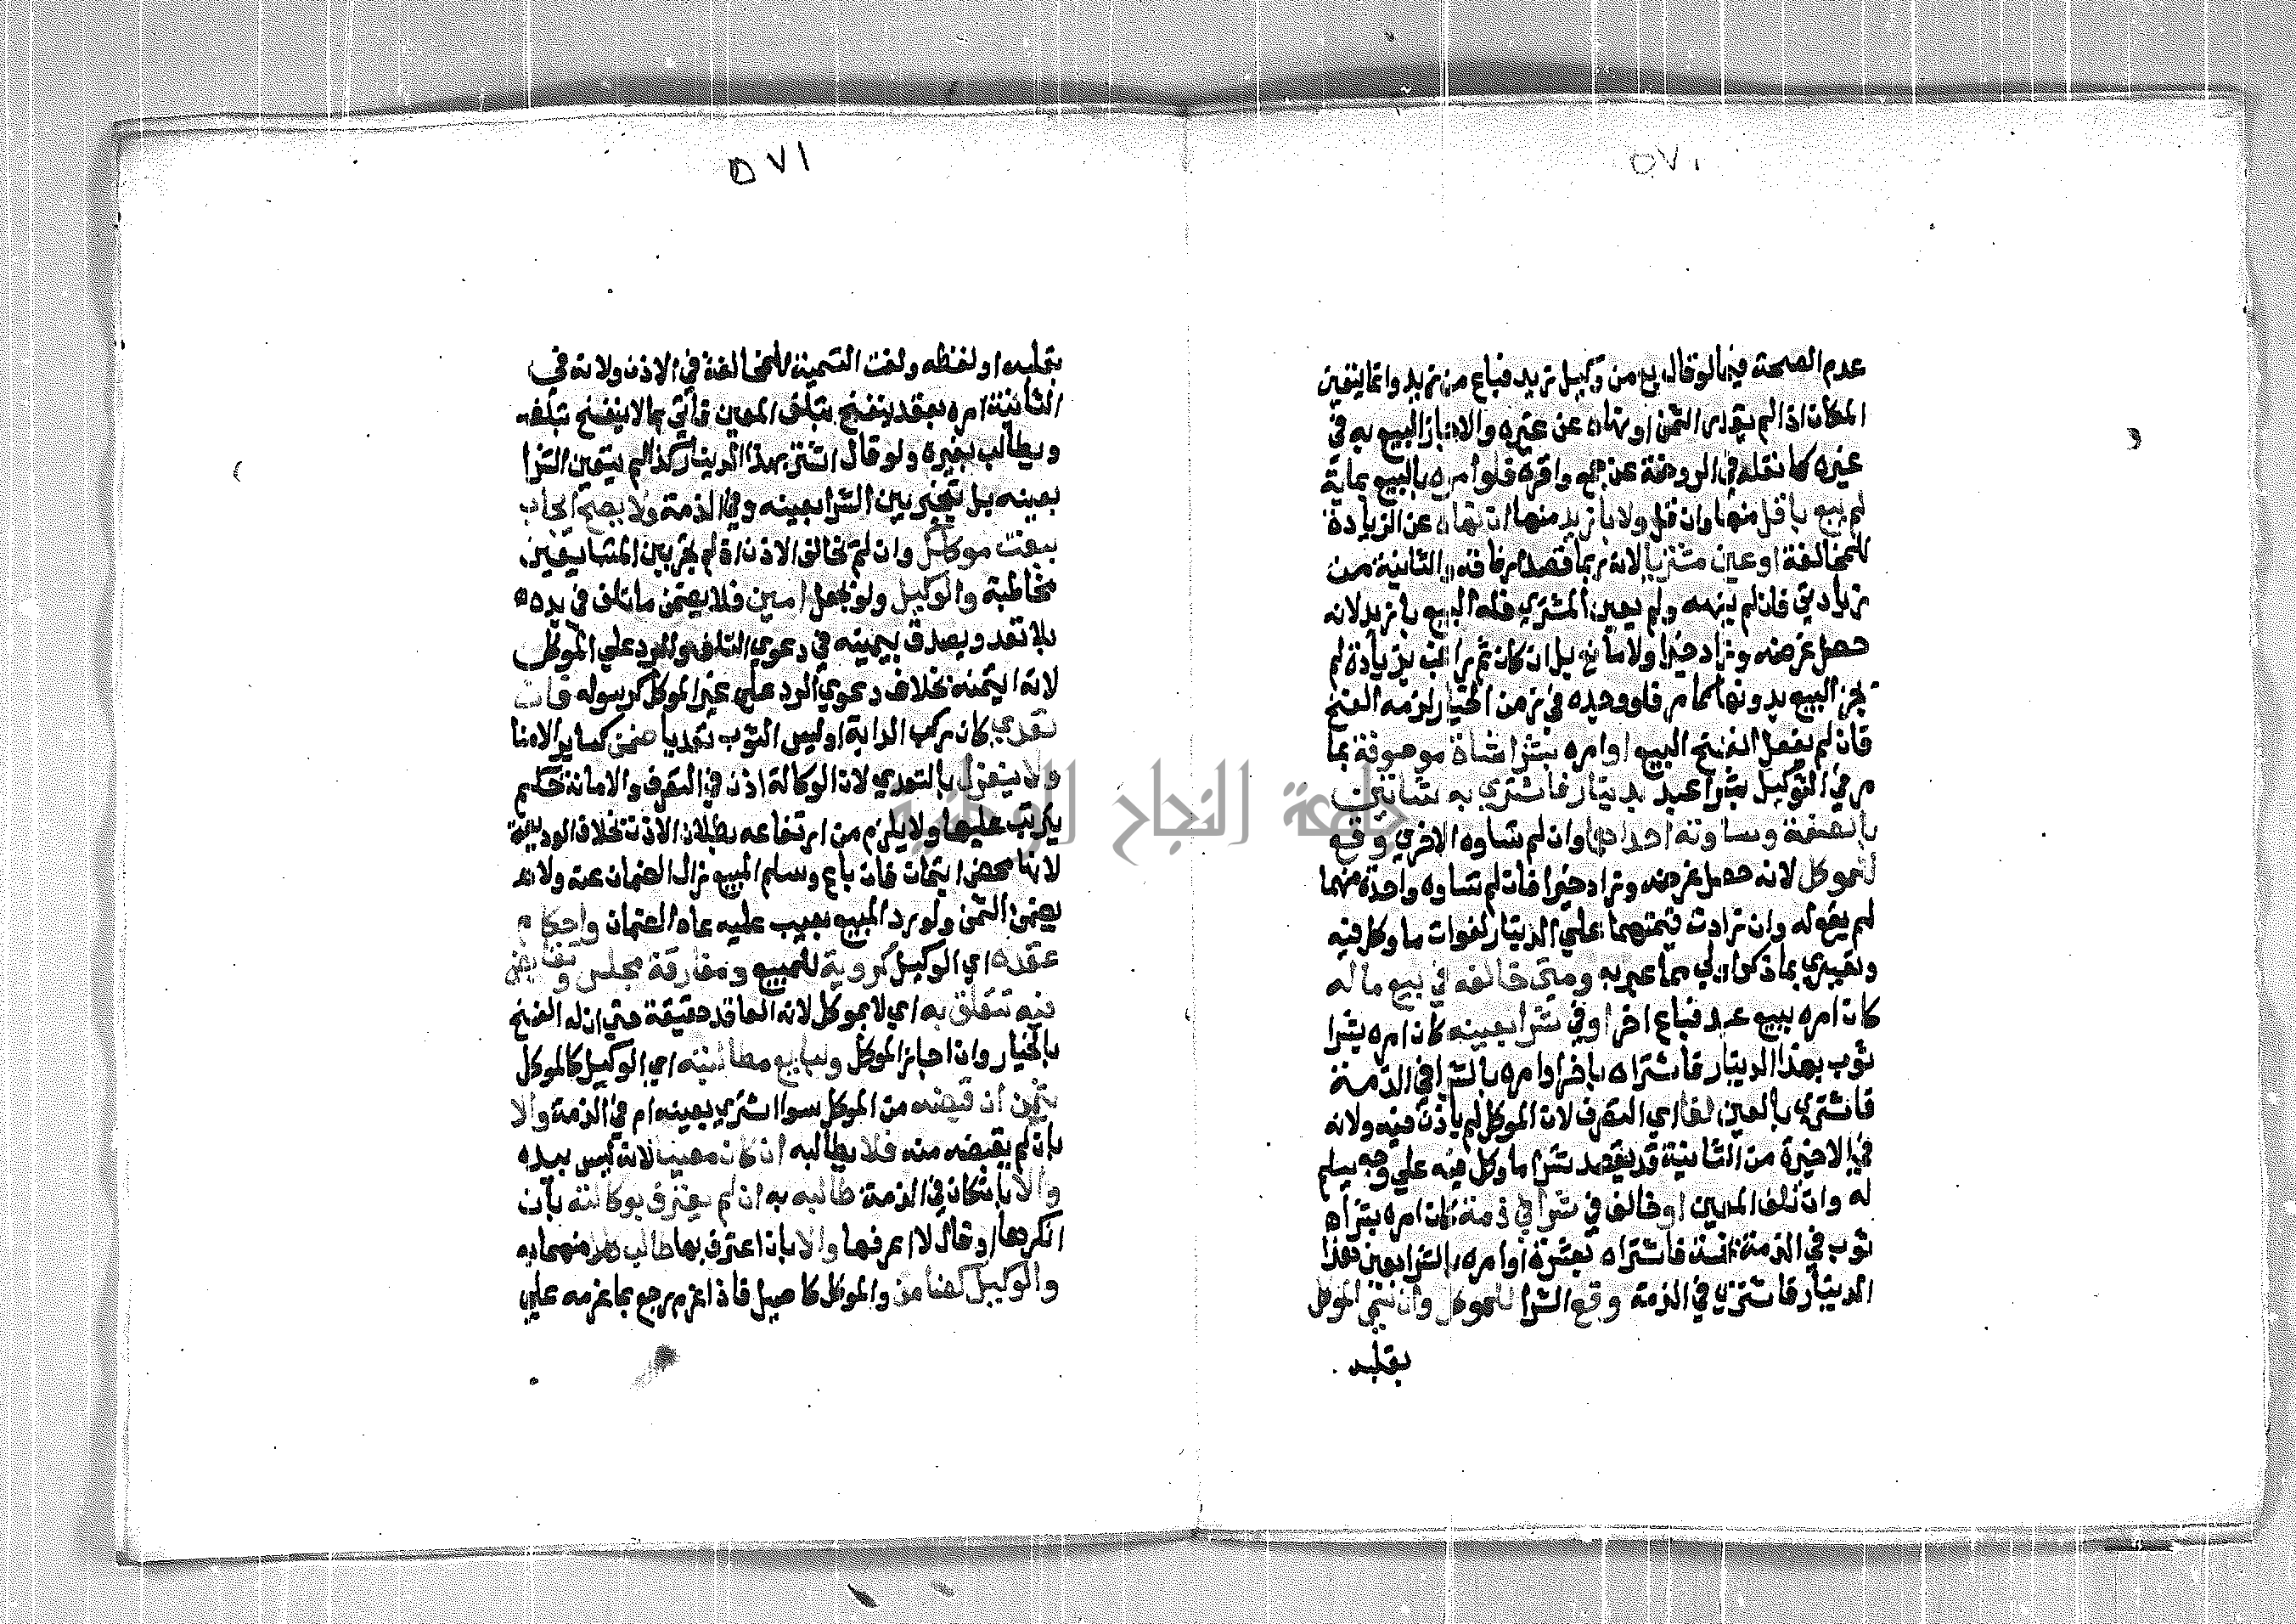 ٥٧١
عدم الصحة فيما لو قال بع من وكيل زيد فباع من زيد وانما يتعين
المكان اذا لم يقدر الثمن او نهاه عن غيره والا جاز البيع به في
غيره كما نقله في الروضة عن جمع واقره فلو امره بالبيع بماية
لم يبع باقل منها وان قل ولا بازيد منها ان نهاه عن الزيادة
للمخالفة او عين مشتريا لانه ربما قصد ارفاقه والثانية من
زيادتي فان لم ينهه ولم يعين المشتري فله البيع بازيد لانه
حصل غرضه وزاد خيرا ولا مانع بل ان كان ثم راغب بزيادة لم
يجز البيع بدونها كما مر فلو وجده في زمن الخيار لزمه الفسخ
فان لم يفعل انفسخ البيع او امره بشرا شاة موصوفة بما
مر في التوكيل بشرا عبد بدينار فاشتري به شاتين
بالصفة وساوته احداهما وان لم تساوه الاخري وقع
للموكل لانه حصل غرضه وزاد خيرا فان لم تساوه واحدة منهما
لم يقع له وان زادت قيمتهما علي الدينار لفوات ما وكل فيه
وتعبيري بما ذكر اولي مما عبر به ومتي خالفه في بيع ماله
كان امره ببيع عبد فباع اخر او في شرا بعينه كان امره بشرا
ثوب بهذا الدينار فاشتراه باخر او امره بالشرا في الذمة
فاشتري بالعين لغا اي التصرف لان الموكل لم ياذن فيه ولانه
في الاخيرة من الثانية قد يقصد شرا ما وكل فيه علي وجه يسلم
له وان تلف المعين او خالف في شرا في ذمة كان امره بشراء
ثوب في الذمة بخمسة فاشتراه بعشرة او امره بالشرا بعين هذا
الدينار فاشتري في الذمة وقع الشرا للموكل وان سمي الموكل
بقلبه
٥٧١
بقلبه او لفظه ولغت التسمية للمخالفة في الاذن ولانه في
الثانية امره بعقد ينفسخ بتلف المعين فاتي بما لا ينفسخ بتلفه
ويطالب بغيره ولو قال اشتر بهذا الدينار كذا لم يتعين الشرا
بعينه بل يتخير بين الشرا بعينه وفي الذمة ولا يصح ايجاب
ببعت موكلك وان لم تخالف الاذن اذ لم يجر بين المتبايعين
مخاطبة والوكيل ولو بجعل امين فلا يضمن ما تلف في يده
بلا تعد ويصدق بيمينه في دعوي التلف والرد علي الموكل
لانه ايتمنه بخلاف دعوي الرد علي غير الموكل كرسوله فان
تعدي كان ركب الدابة او لبس الثوب تعديا ضمن كساير الامنا
ولا ينعزل بالتعدي لان الوكالة اذن في التصرف والامانة حكم
يترتب عليها ولا يلزم من ارتفاعه بطلان الاذن بخلاف الوديعة
لانها محض ايتمان فان باع وسلم المبيع زال الضمان عنه ولا
يضمن الثمن ولو رد المبيع بعيب عليه عاد الضمان واحكام
عقده اي الوكيل كروية للمبيع ومفارقة مجلس وتقابض
فيه تتعلق به اي لا بموكل لانه العاقد حقيقة حتي ان له الفسخ
بالخيار وان اجاز الموكل ولبايع مطالبته اي الوكيل كالموكل
بثمن ان قبضه من الموكل سوا اشتري بعينه ام في الذمة والا
بان لم يقبضه منه فلا يطالبه ان كان معينا لانه ليس بيده
والا بان كان في الذمة طالبه به ان لم يعترف بوكالته بان
انكرها او قال لا اعرفها والا بان اعترف بها طالب كلا منهما به
والوكيل كضامن والموكل كاصيل فاذا غرم رجع بما غرمه علي
جامعة النجاح الوطنية